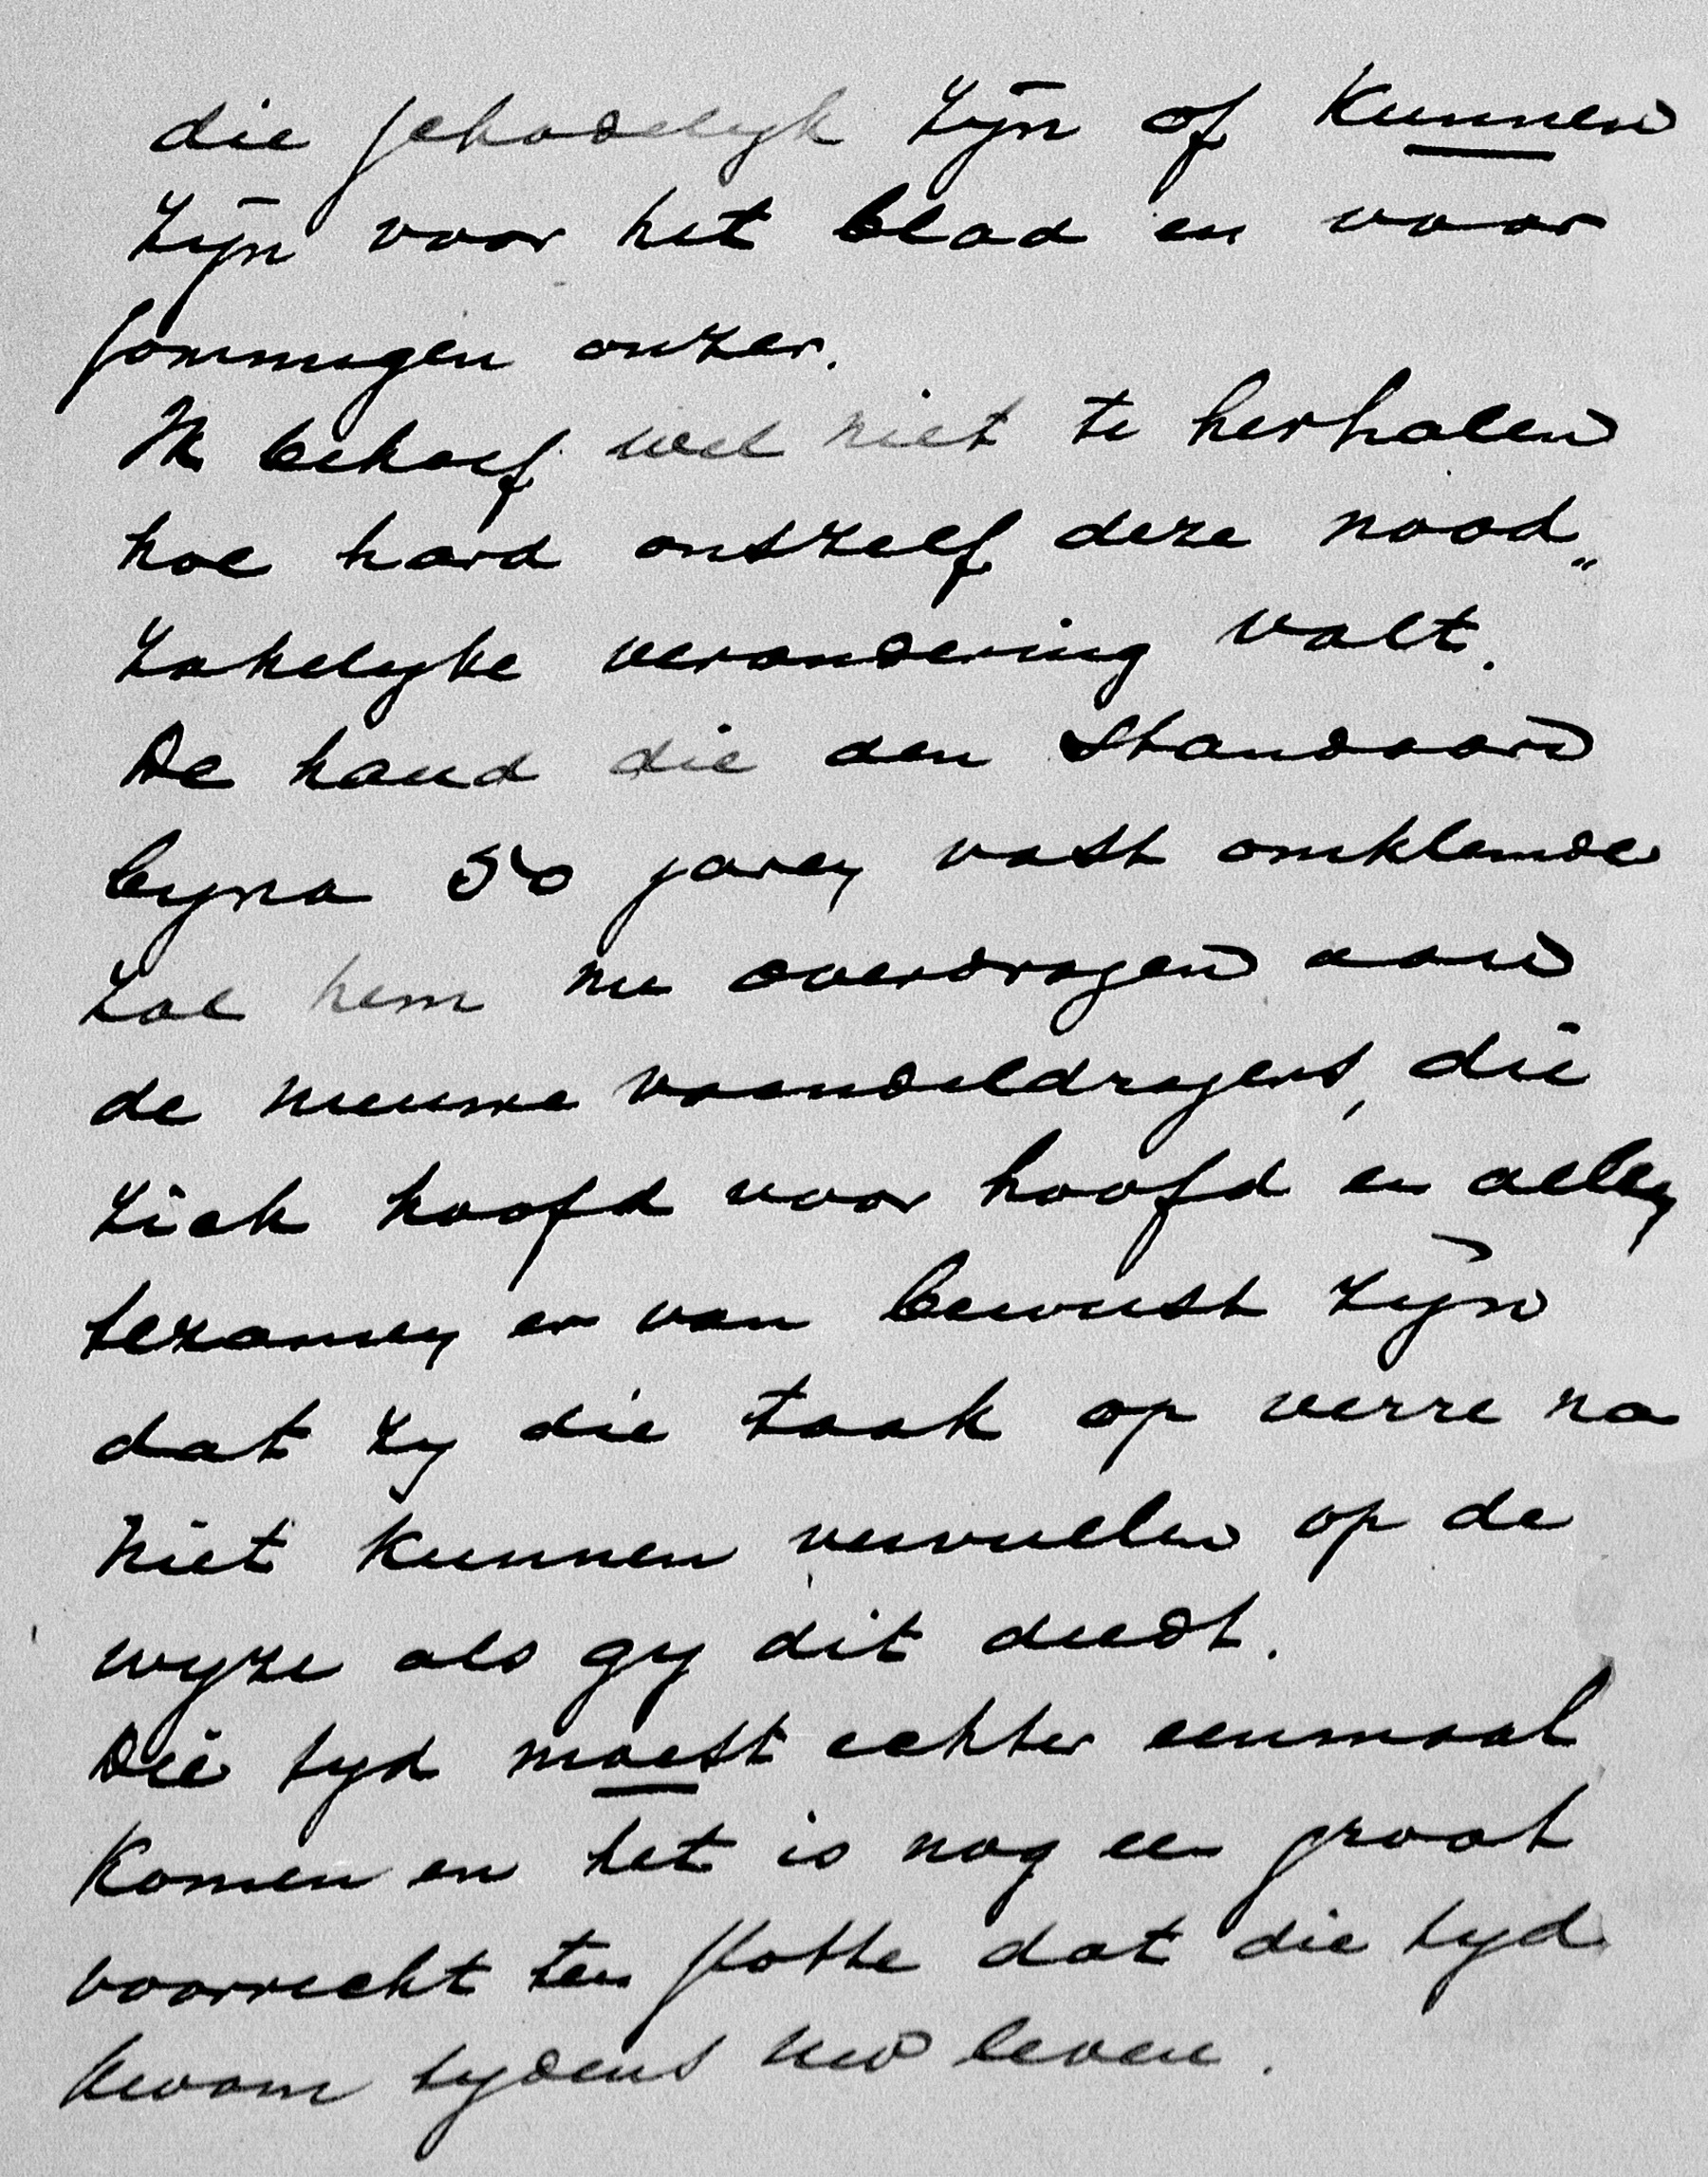 die schadelyk zyn of kunnen
zyn voor het blad en voor
sommigen onzer.
Ik behoef wel niet te herhalen
hoe hard onszelf deze nood„
zakelyke verandering valt.
De hand die den Standaard
byna 50 jaren vast omklemde
zal hem nu overdragen aan
de nieuwe vaandeldragers, die
zich hoofd voor hoofd en allen
tezamen er van bewust zyn
dat zy die taak op verre na
niet kunnen vervullen op de
wyze als gy dit deedt.
Die tyd moest echter eenmaal
komen en het is nog een groot
voorrecht ten slotte dat die tyd
kwam tydens uw leven.